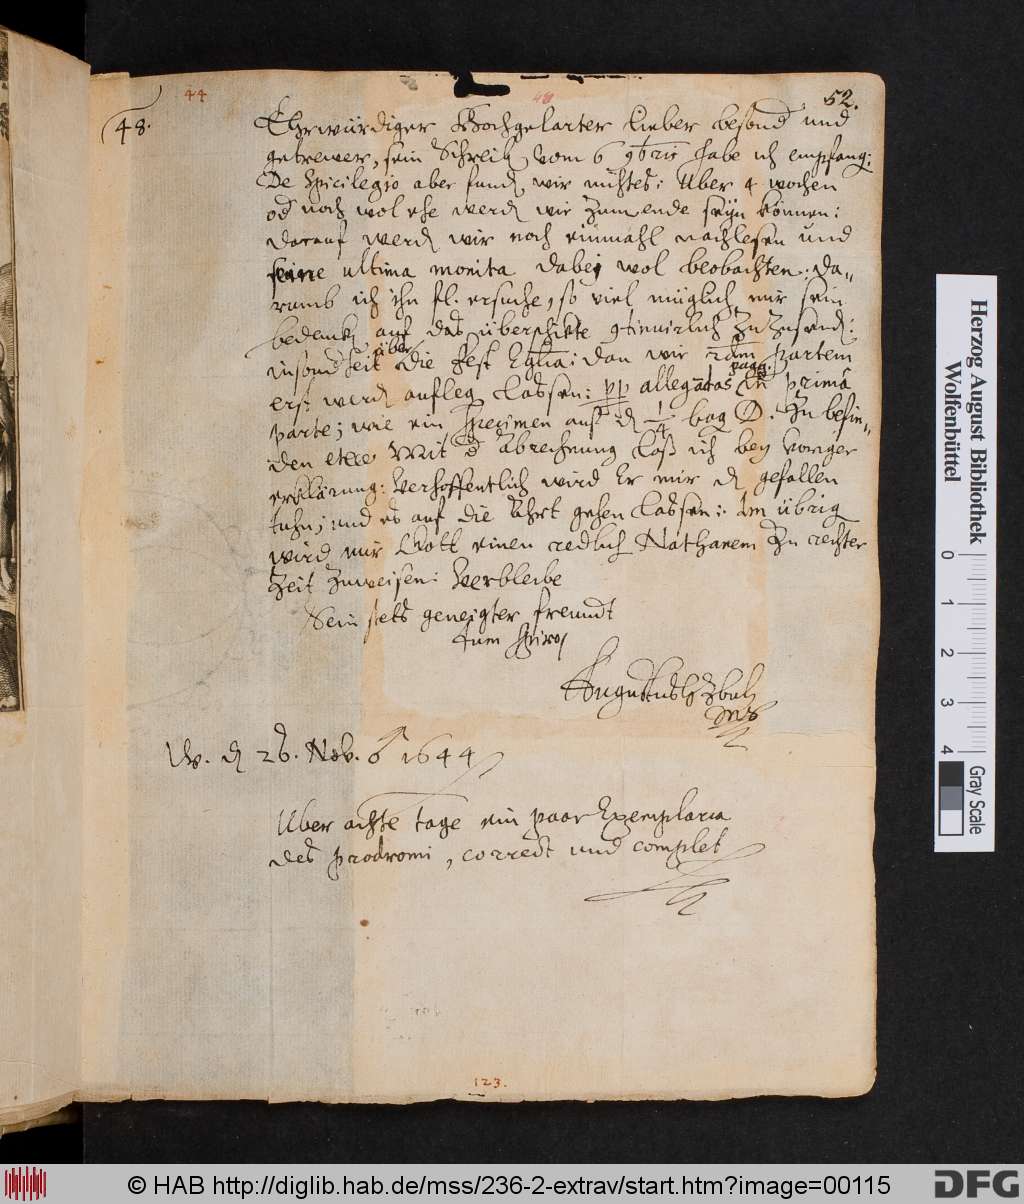 44
48
52.
48.
Ehrwürdiger Hochgelarter Lieber besond und
getrewer, sein Schreib. vom 6 9bris habe ich empfang:
De Spicilegio aber fund wir nichtes: Uber 4 wochen
od noch wol ehe werd wir zum ende seyn können:
darauf werd wir noch einmahl nachlesen und
seine ultima monita dabej wol beobachten: da-
rumb ich ihn fl. ersuche, so viel müglich mir sein
bedenk auf das überschikte zuzusend:
insond heit über die fest Eglia: dan wir 2dam partem
erst werd aufleg lassen: pp allegatas pagg: in primâ
parte; wie ein Specimen auß d 1/4 bog zu befin-
den Mit d Abrechnung laß ich bey voriger
erklärung: Verhoffentlich wird Er mir d gefallen
tuhn; und es auf die gehen lassen: Im übrig
wird mir Gott einen redlich Nathanem zu rechter
Zeit zuweisen: Verbleibe
Sein stets geneigter freundt
Augustus
W. d 26. Nov. 1644
Uber achte tage ein paar Exemplaria
des prodromi, correct und complet
123.
Herzog August Bibliothek
Wolfenbüttel
0 1 2 3 4
Gray Scale
© HAB http://diglib.hab.de/mss/236-2-extrav/start.htm?image=00115
DFG